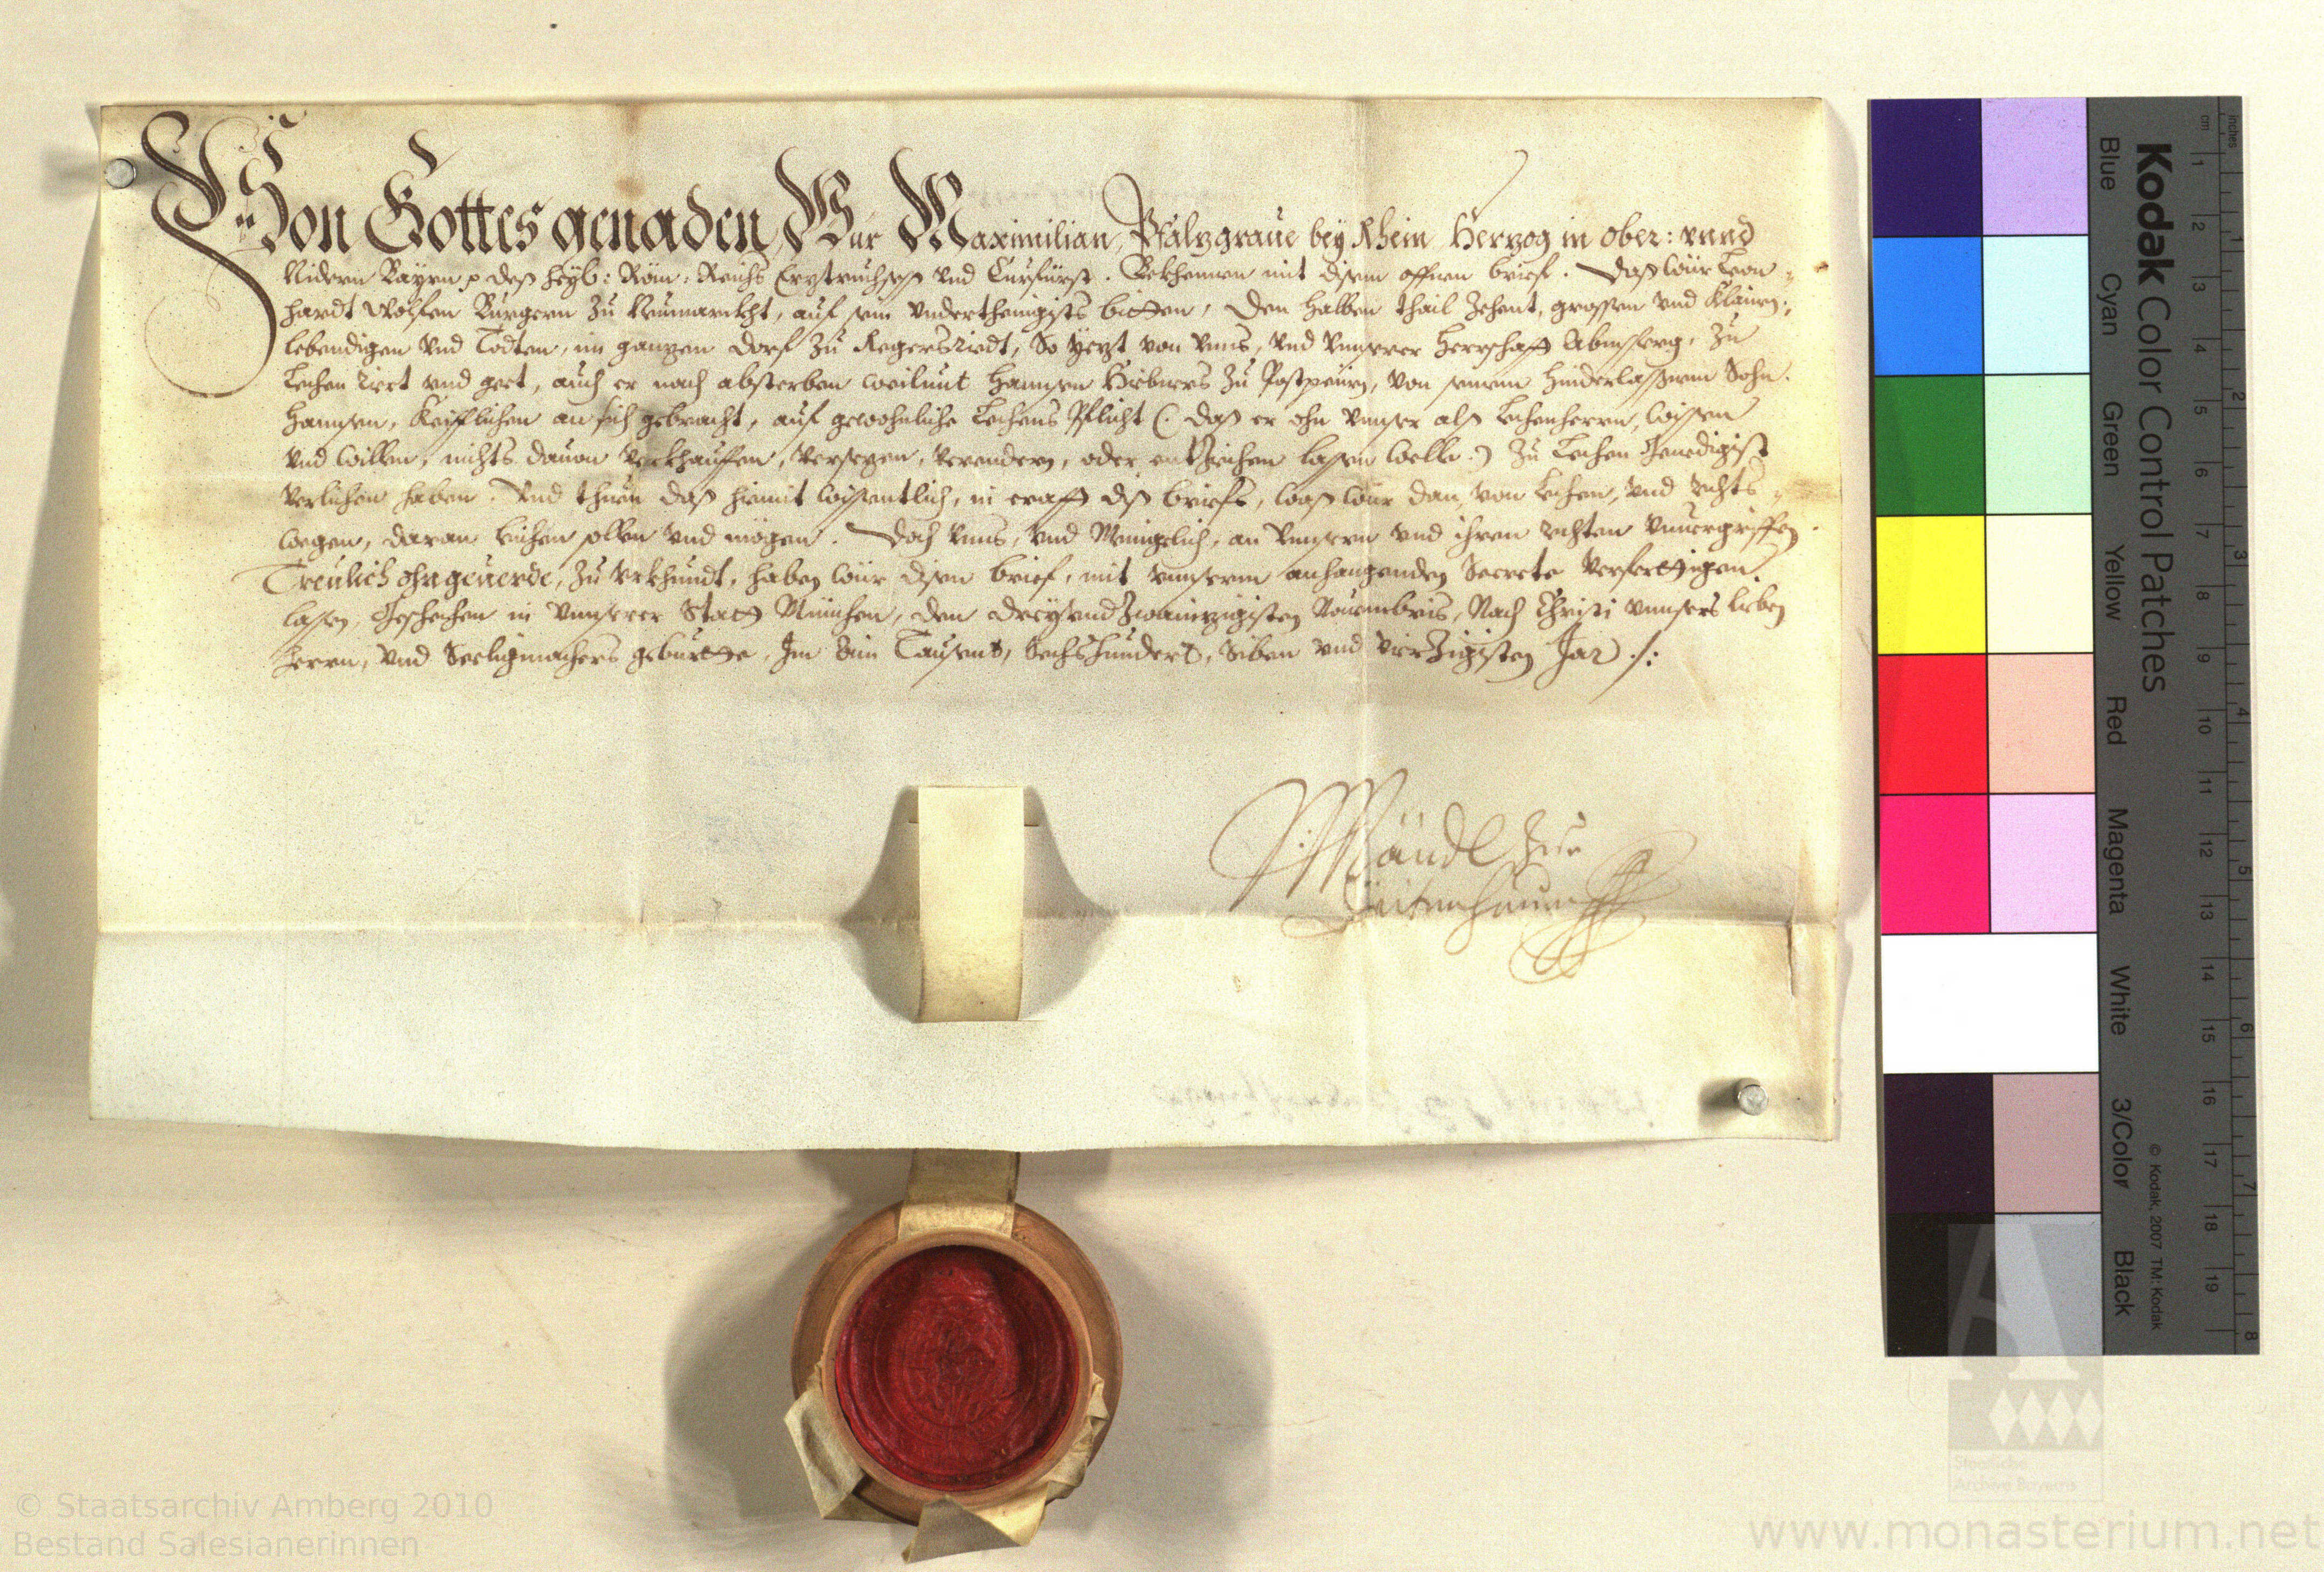 Von Gottes genaden Wür Maximilian, Pfalzgraue bey Rhein Herzog in Ober: vnnd
Nidern Bayrn p des heyl: Röm: Reichs Erztruchseß vnd Curfürst. Bekhennen mit disem offnen brief. Daß wür Leon=
hardt Wolfen Burgern zu Neumarckht, auf sein vnderthenigists bitten, den halben thail Zehent, grossen vnd Klainen,
lebendigen vnd Todten, im ganzen dorf zu Regersriedt, So yezt von vnns, vnd vnnserer Herrschafft Abensperg, zu
Lechen riert vnd geet, auch er nach absterben weilunt Hannsen zu von seinem hinderlaßnem Sohn.
Hannsen, Keifflichen an sich gebracht, auf gewohnliche Lechens Pflicht (: daß er ohn vnnser als Lechenherrn, wissen
vnd willen, nichts dauon verkhauffen, versezen, verendern, oder entziechen lassen welle :) zu Lechen Genedigist
verlichen haben. Vnd thuen daß hiemit wissentlich, in crafft diß briefs, waß wür dan, von Lechen, vnd rechts=
wegen, daran leichen sollen vnd mögen. Doch vnns, vnd Menigelich, an vnnsern vnd ihren rechten vnuergriffen.
Treulich ohn geuerde, zu vrkhundt, haben wür disen brief, mit vnnserm anhangenden Secrete verferttigen
lassen, Geschechen in vnnserer Statt München, den dreyundzwainzigisten Nouembris, Nach Christi vnnsers lieben
Herrn, vnd Seeligmachers geburtte, Im Ain Tausent, Sechshundert, Siben vnd vierzigisten Jar ./:
Mändl zue
Kodak Color Control Patches
Blue Cyan Green Yellow Red Magenta White 3/Color Black
© Kodak, 2007 TM: Kodak
inches 1 2 3 4 5 6 7 8
cm 1 2 3 4 5 6 7 8 9 10 11 12 13 14 15 16 17 18 19
© Staatsarchiv Amberg 2010
Bestand Salesianerinnen
Staatliche
Archive Bayerns
www.monasterium.net